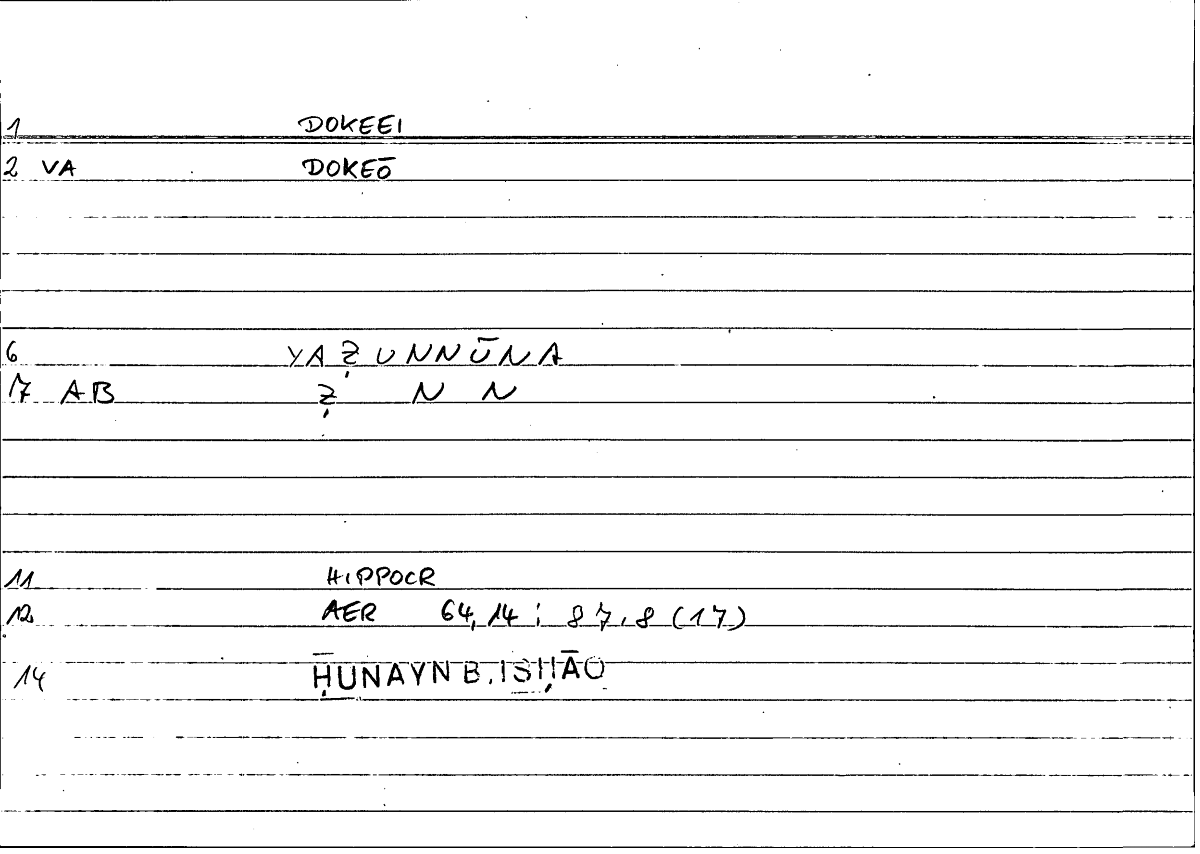 1 DOKEEI
2 VA DOKEŌ
6 YAẒUNNŪNA
17 AB Ẓ N N
11 HIPPOCR
12 AER 64,14 ; 87,8 (17)
14 ḤUNAYN B. ISḤĀQ